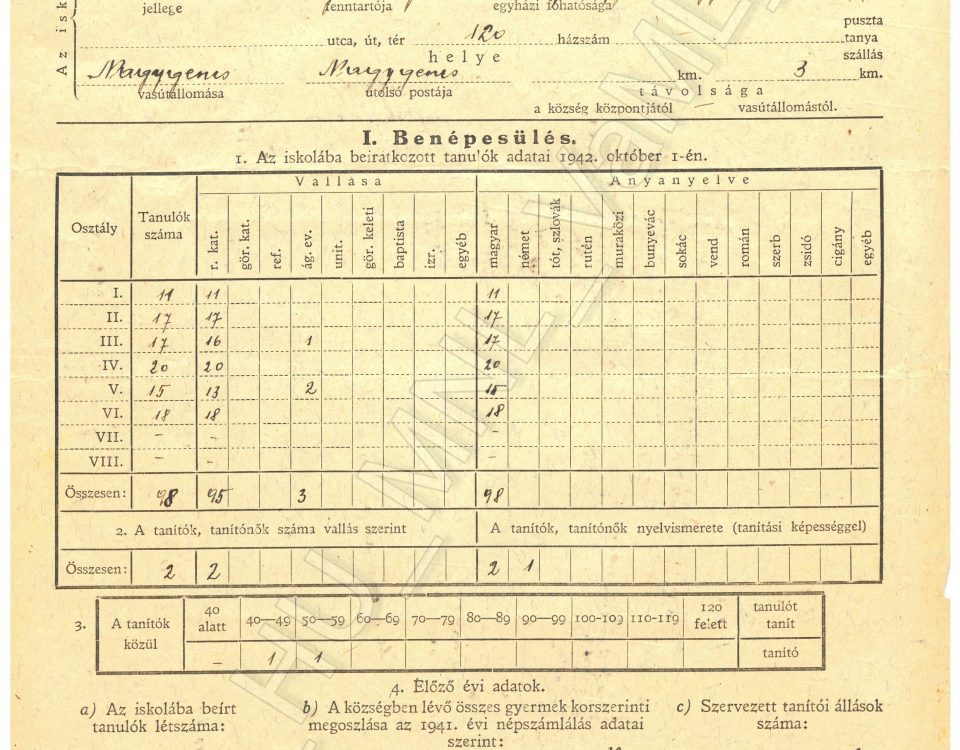 Az isk
jellege fenntartója egyházi főhatósága
utca, út, tér 120 házszám puszta tanya szállás
helye
Nagygenis Nagygenis km. 3 km.
vasútállomása utolsó postája távolsága
a község központjától — vasútállomástól.
I. Benépesülés.
1. Az iskolába beiratkozott tanulók adatai 1942. október 1-én.
Osztály Tanulók száma Vallása Anyanyelve
r. kat. gör. kat. ref. ág. ev. unit. gör. keleti baptista izr. egyéb magyar német tót, szlovák rutén muraközi bunyevác sokác vend román szerb zsidó cigány egyéb
I. 11 11 11
II. 17 17 17
III. 17 16 1 17
IV. 20 20 20
V. 15 13 2 15
VI. 18 18 18
VII. – – –
VIII. – –
Összesen: 98 95 3 98
2. A tanítók, tanítónők száma vallás szerint A tanítók, tanítónők nyelvismerete (tanítási képességgel)
Összesen: 2 2 2 1
3. A tanítók közül 40 alatt 40—49 50—59 60—69 70—79 80—89 90—99 100-109 110-119 120 felett tanulót tanít
– 1 1 tanító
4. Előző évi adatok.
a) Az iskolába beírt tanulók létszáma:
b) A községben lévő összes gyermek korszerinti megoszlása az 1941. évi népszámlálás adatai szerint:
c) Szervezett tanítói állások száma:
HU_MNL_VaML